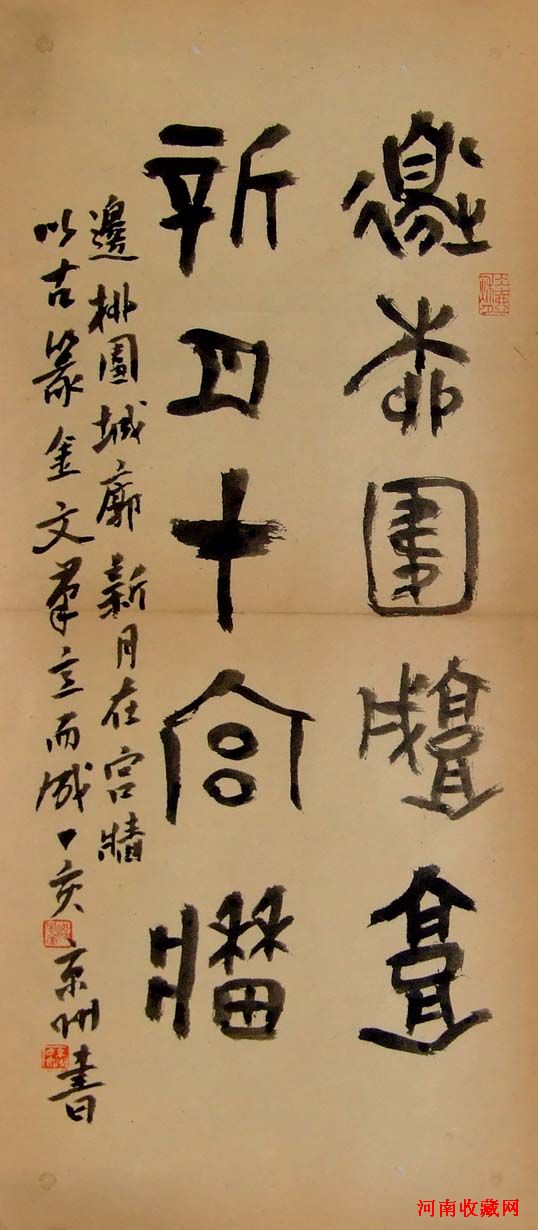 邊桃園城廓
新月在宮牆
邊桃園城廓 新月在宮牆
以古篆金文筆意而成丁亥京州書
河南收藏网